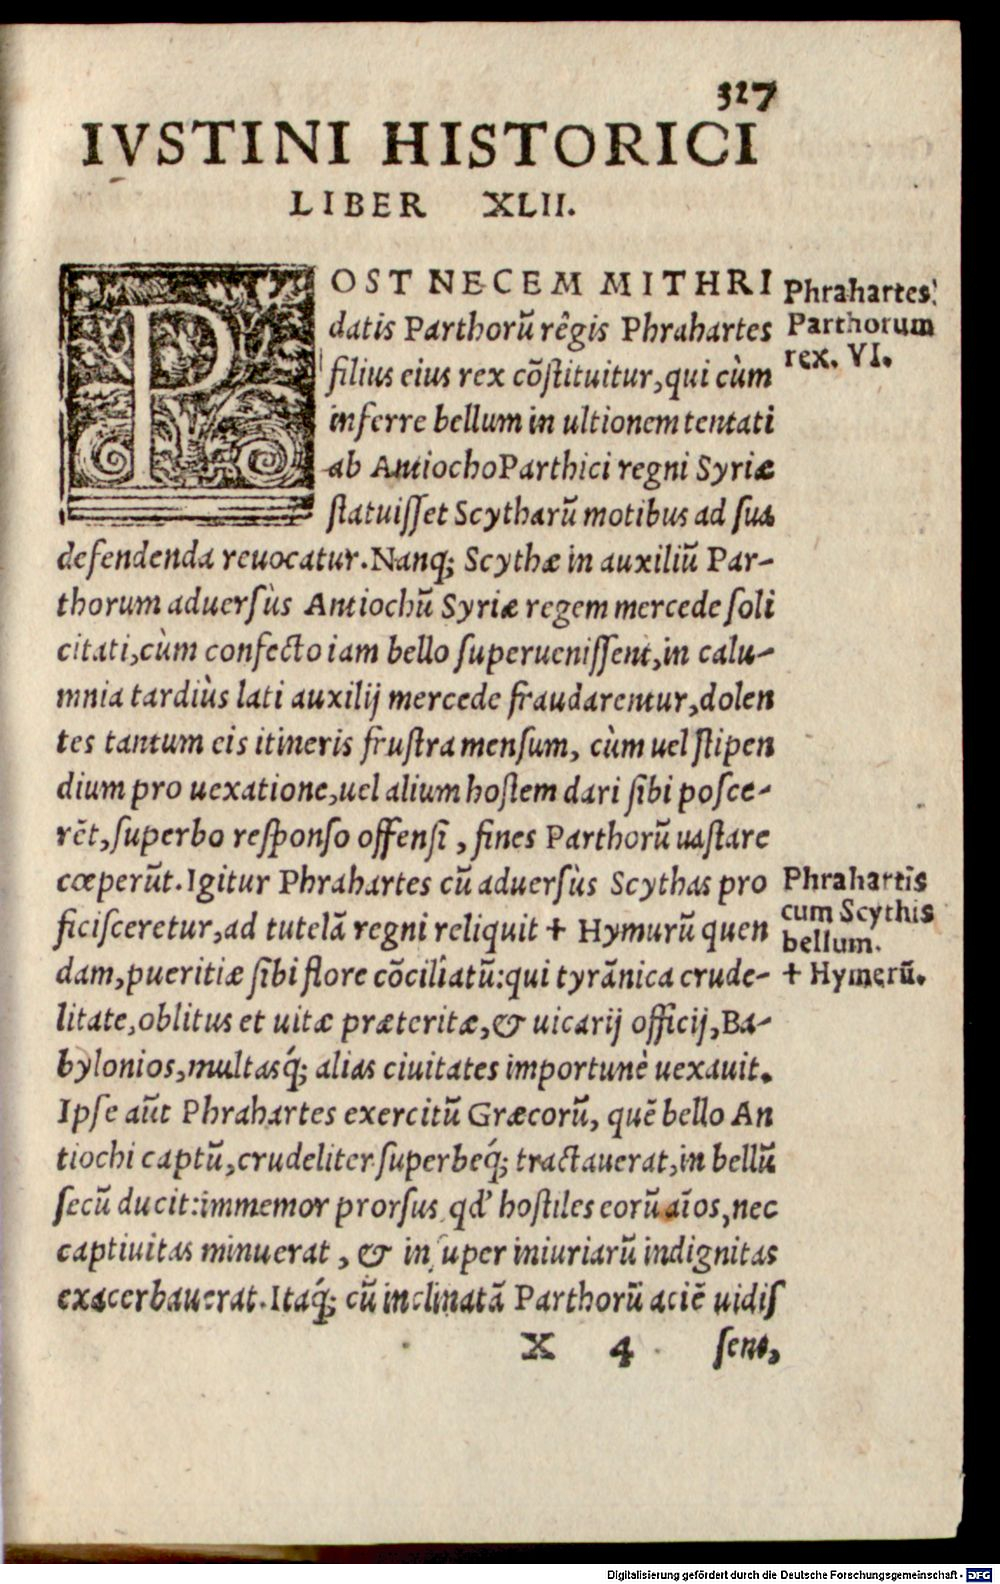 327
IVSTINI HISTORICI
LIBER XLII.
POST NECEM MITHRI
datis Parthorũ rêgis Phrahartes
filius eius rex cõstituitur, qui cùm
inferre bellum in ultionem tentati
ab Antiocho Parthici regni Syriæ
statuisset Scytharũ motibus ad sua
defendenda reuocatur. Nanq; Scythæ in auxiliũ Par-
thorum aduersùs Antiochũ Syriæ regem mercede soli
citati, cùm confecto iam bello superuenissent, in calu-
mnia tardiùs lati auxilij mercede fraudarentur, dolen
tes tantum eis itineris frustra mensum, cùm uel stipen
dium pro uexatione, uel alium hostem dari sibi posce-
rẽt, superbo responso offensi, fines Parthorũ uastare
cœperũt. Igitur Phrahartes cũ aduersùs Scythas pro
ficisceretur, ad tutelã regni reliquit + Hymurũ quen
dam, pueritiæ sibi flore cõciliatũ: qui tyrãnica crude-
litate, oblitus et uitæ præteritæ, & uicarij officij, Ba-
bylonios, multasq́; alias ciuitates importunè uexauit.
Ipse aũt Phrahartes exercitũ Græcorũ, quẽ bello An
tiochi captũ, crudeliter superbeq́; tractauerat, in bellũ
secũ ducit: immemor prorsus qđ hostiles eorũ aĩos, nec
captiuitas minuerat, & insuper iniuriarũ indignitas
exacerbauerat. Itaq́; cũ inclinatã Parthorũ aciẽ uidis
X 4 sent,
Phrahartes
Parthorum
rex. VI.
Phrahartis
cum Scythis
bellum.
+ Hymerũ.
Digitalisierung gefördert durch die Deutsche Forschungsgemeinschaft - DFG